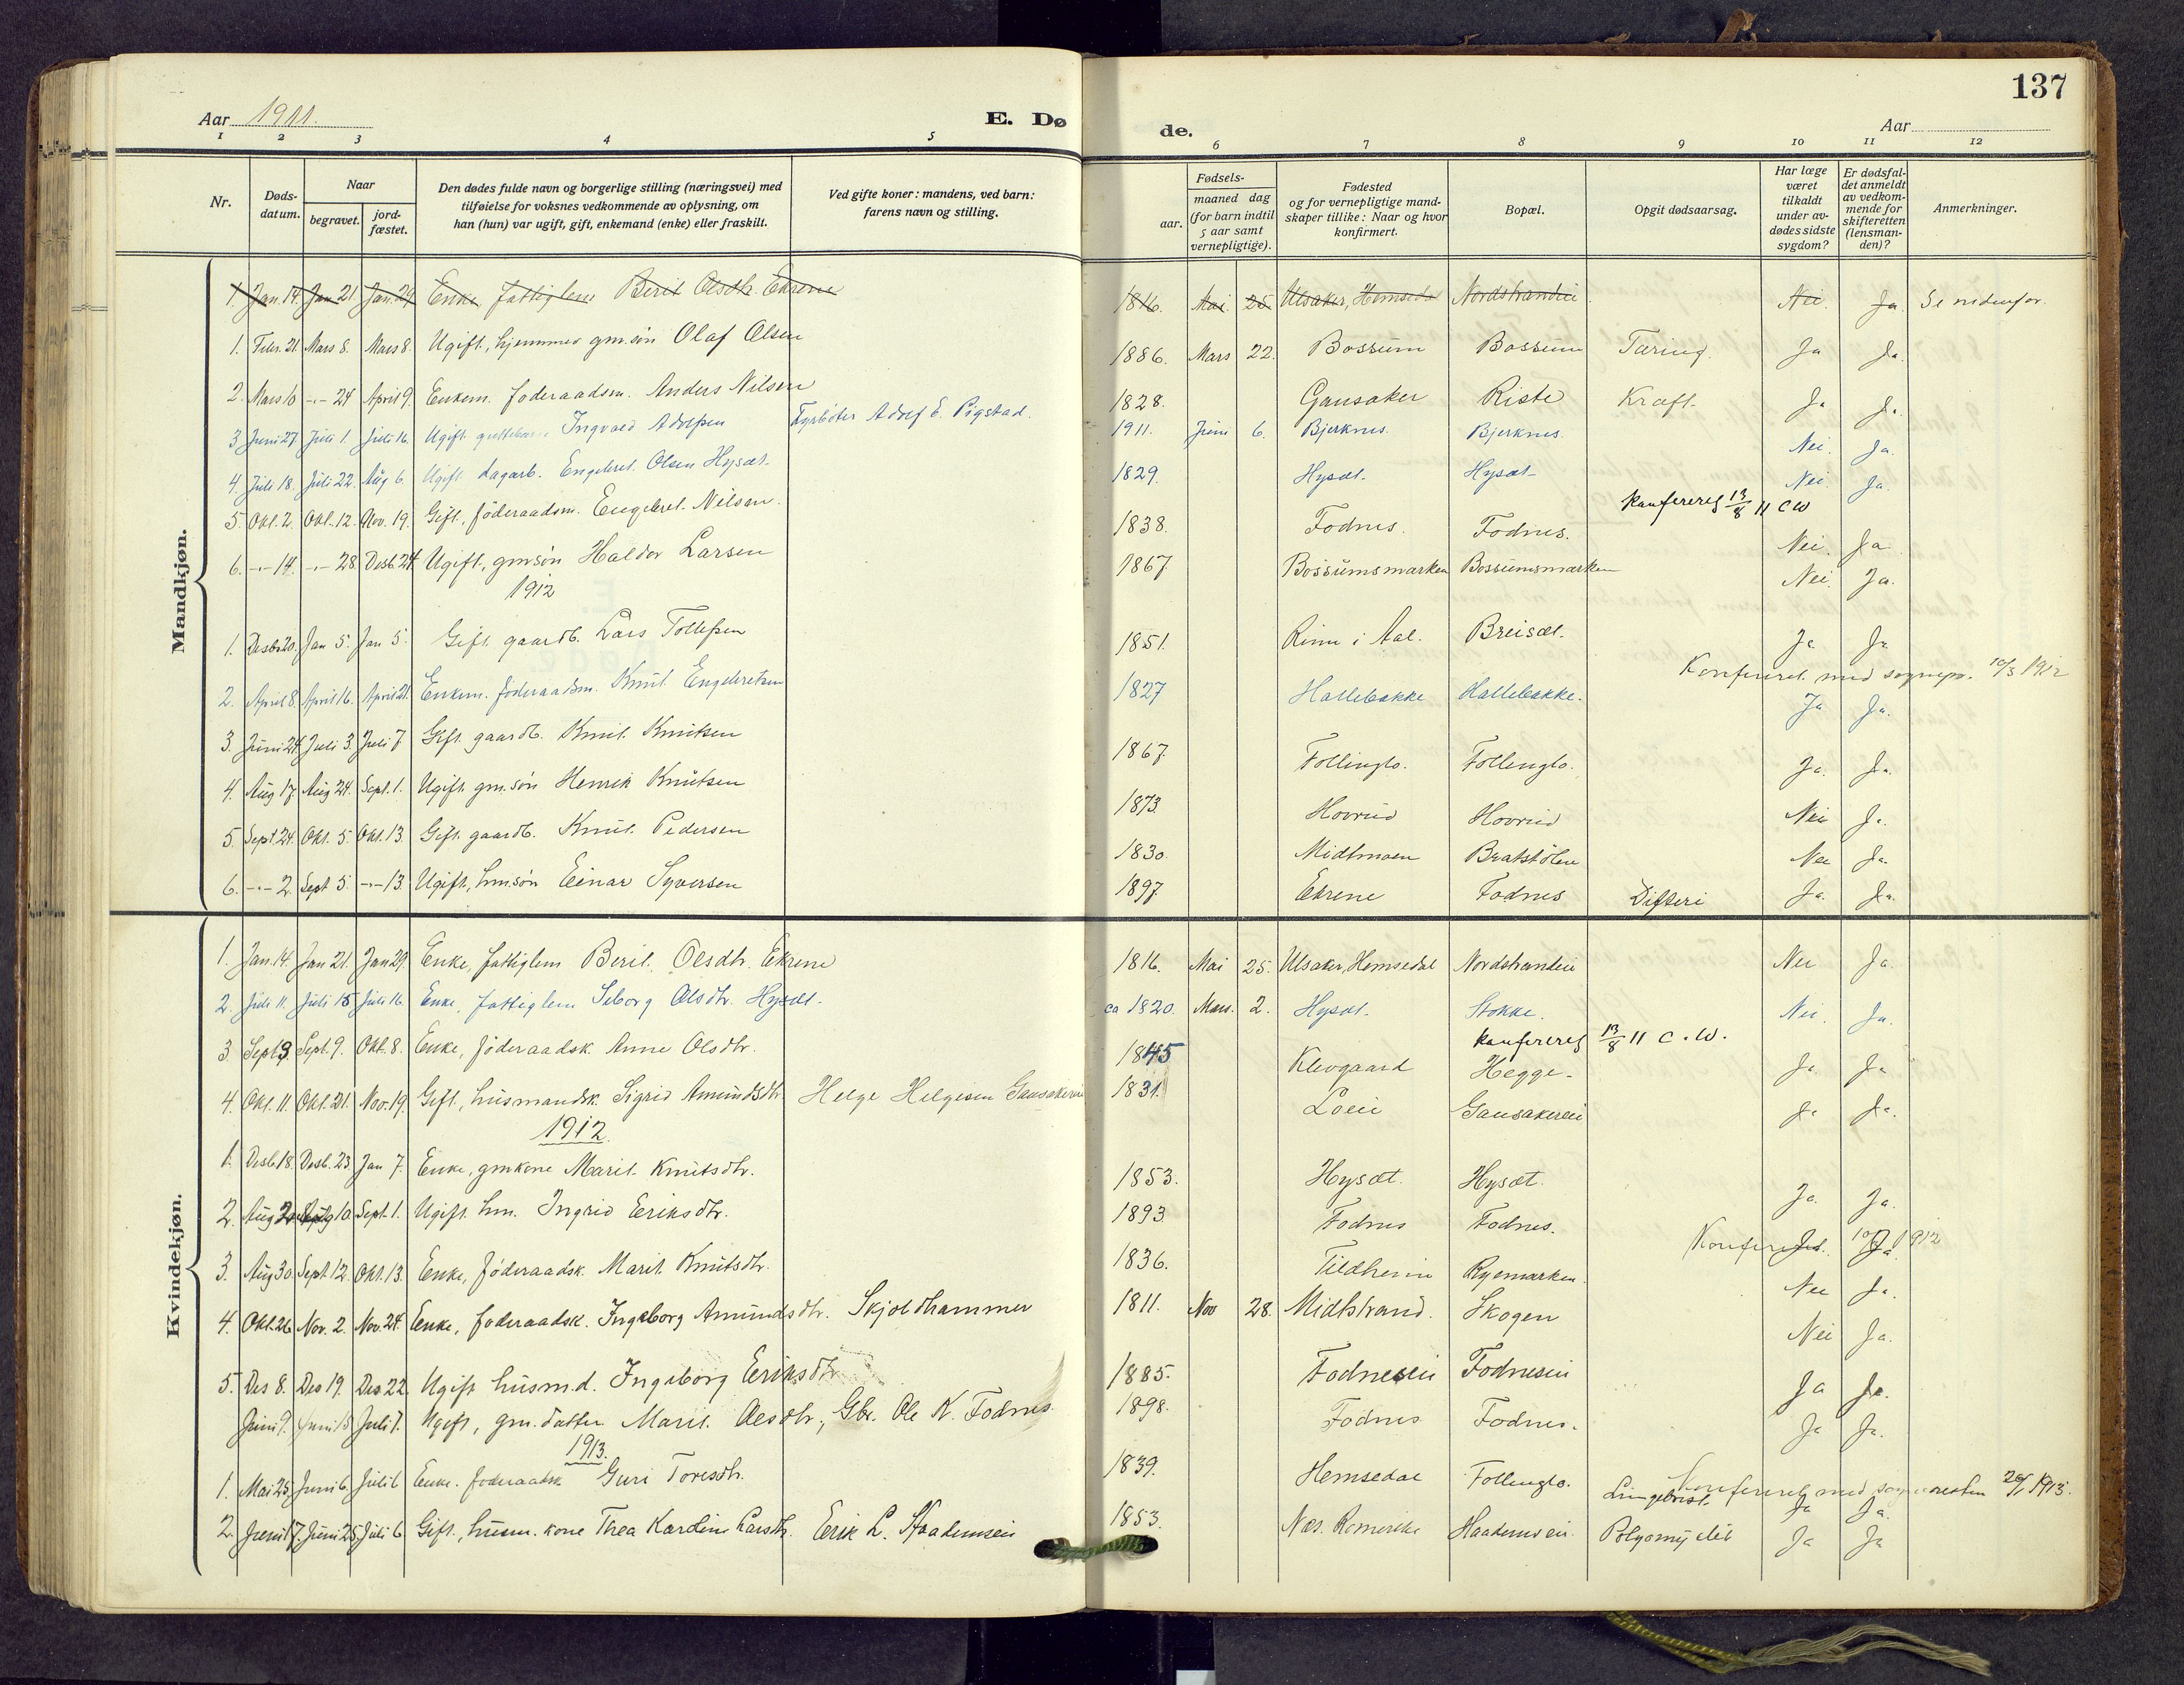 137
Aar 1911.
E. Dø
de.
Aar
1 2 3 4 5 6 7 8 9 10 11 12
Nr.
Døds-datum.
Naar
begravet.
jord-fæstet.
Den dødes fulde navn og borgerlige stilling (næringsvei) med
tilføielse for voksnes vedkommende av oplysning, om
han (hun) var ugift, gift, enkemand (enke) eller fraskilt.
Ved gifte koner: mandens, ved barn:
farens navn og stilling.
Fødsels-
aar.
maaned dag
(for barn indtil
5 aar samt
vernepligtige).
Fødested
og for vernepligtige mand-
skaper tillike: Naar og hvor
konfirmert.
Bopæl.
Opgit dødsaarsag.
Har læge
været
tilkaldt
under av-
dødes sidste
sygdom?
Er dødsfal-
det anmeldt
av vedkom-
mende for
skifteretten
(lensman-
den)?
Anmerkninger.
Mandkjøn.
1. Jan. 14. Jan 21. Jan. 29 Enke, fattiglem Berit Olsdtr. Ekrene 1816. Mai 25 Ulsaker, Hemsedal Nordstrandeie Nei. Ja. Se nedenfor.
1. Febr. 21. Mars 8. Mars 8. Ugift, hjemmev gm.søn Olaf Olsen 1886. Mars 22. Bossum Bossum Tæring. Ja Ja.
2. Mars 10 -"- 24 April 9. Enkem. føderaadsm. Anders Nilsen 1828. Gausaker Riste Kræft. Ja Ja.
3 Juni 27. Juli 1. Juli 16. Ugift guttebarn Ingvald Adolfsen Fyrbøter Adolf E. Pigstad. 1911. Juni 6. Bjerknes. Bjerknes. Nei. Ja.
4. Juli 18. Juli 22. Aug 6. Ugift dagarb. Engebret Olsen Hysæt. 1829. Hysæt. Hysæt Nei. Ja.
Konfereret 13/8 11 CW
5 Okt. 2. Okt. 12. Nov. 19. Gift, føderaadsm. Engebret Nilsen. 1838. Fodnes. Fodnes. Nei. Ja
6. -"- 14. -"- 28 Desb. 24 Ugift, gmsøn Haldor Larsen 1867 Bossumsmarken Bossumsmarken Nei. Ja.
1912
1. Desbr 20. Jan 5. Jan 5. Gift. gaardb. Lars Tollefsen 1851. Rime i Aal. Breisæt. Ja Ja
Konfereret med sognepr. 10/3 1912
2. April 8. April 16. April 21. Enkem. føderaadsm. Knut Engebretsen 1827 Hallebakke Hallebakke. Ja Ja.
3. Juni 24. Juli 3. Juli 7. Gift. gaardb. Knut Knutsen 1867. Follinglo. Follenglo. Ja. Ja.
4. Aug 17. Aug 24. Sept. 1. Ugift gm.søn Henrik Knutsen 1873. Hovrud Hovrud Nei Ja.
5. Sept. 24. Okt. 5. Okt. 13. Gift. gaardb. Knut Pedersen 1830. Midtmoen Bratstølen Nei Ja
6. -"- 2. Sept 5. -"- 13. Ugift, hm.søn Einar Syversen 1897. Ekrene Fodnes Difteri Ja. Ja.
Kvindekjøn.
1. Jan. 14. Jan 21. Jan 29. Enke, fattiglem Berit Olsdtr. Ekrene 1816. Mai 25. Ulsaker, Hemsedal Nordstrandeie Nei Ja.
2. Juli 11. Juli 15. Juli 16. Enke, fattiglem Siborg Olsdtr. Hysæt. ca 1820. Mars. 2. Hysæt. Stokke. Nei. Ja.
Konfereret 13/8 11 C.W.
3. Sept 3. Sept. 9. Okt. 8. Enke, føderaadsk. Anne Olsdtr. 1845 Klevgaard Hegge. Ja Ja
4. Okt. 11. Okt. 21. Nov. 19. Gift, husmandsk. Sigrid Amundsdtr. Helge Helgesen Gausakereie 1831. Loeie Gausakereie Ja Ja.
1912.
1. Desb. 18. Desb. 23. Jan 7. Enke, gmkone Marit Knutsdtr. 1853. Hysæt. Hysæt. Ja. Ja.
2. Aug Aug 10. Sept. 1. Ugift hm. Ingrid Eriksdtr. 1893. Fodnes Fodnes. Ja. Ja
Konfereret 1912
3. Aug 30. Sept 12. Okt. 13. Enke, føderaadsk. Marit Knutsdtr. 1836. Tildheim Ryemarken. Nei Ja.
4. Okt. 26 Nov. 2. Nov. 24. Enke, føderaadsk. Ingeborg Amundsdtr. Skjoldhammer 1811. Nov 28. Midtstrand. Skogen Nei Ja.
5. Des 8. Des 19. Des 22. Ugift husm.d. Ingeborg Eriksdtr 1885. Fodneseie Fodneseie Ja Ja.
Juni 9. Juni 15 Juli 7. Ugift, gm. datter Marit Olesdtr., Gbr. Ole K. Fodnes 1898. Fodnes Fodnes. Ja Ja.
1913.
1. Mai 25. Juni 6. Juli 6 Enke. føderaadsk Guri Toresdtr. 1839. Hemsedal Follenglo. Ja Ja.
Konfereret med sognepresten 1913.
2. Juni 17. Juni 25. Juli 6 Gift., husm. kone Thea Karoline Larsdtr. Erik L. Haademseie 1853. Næs. Romerike Haademseie. Ja Ja